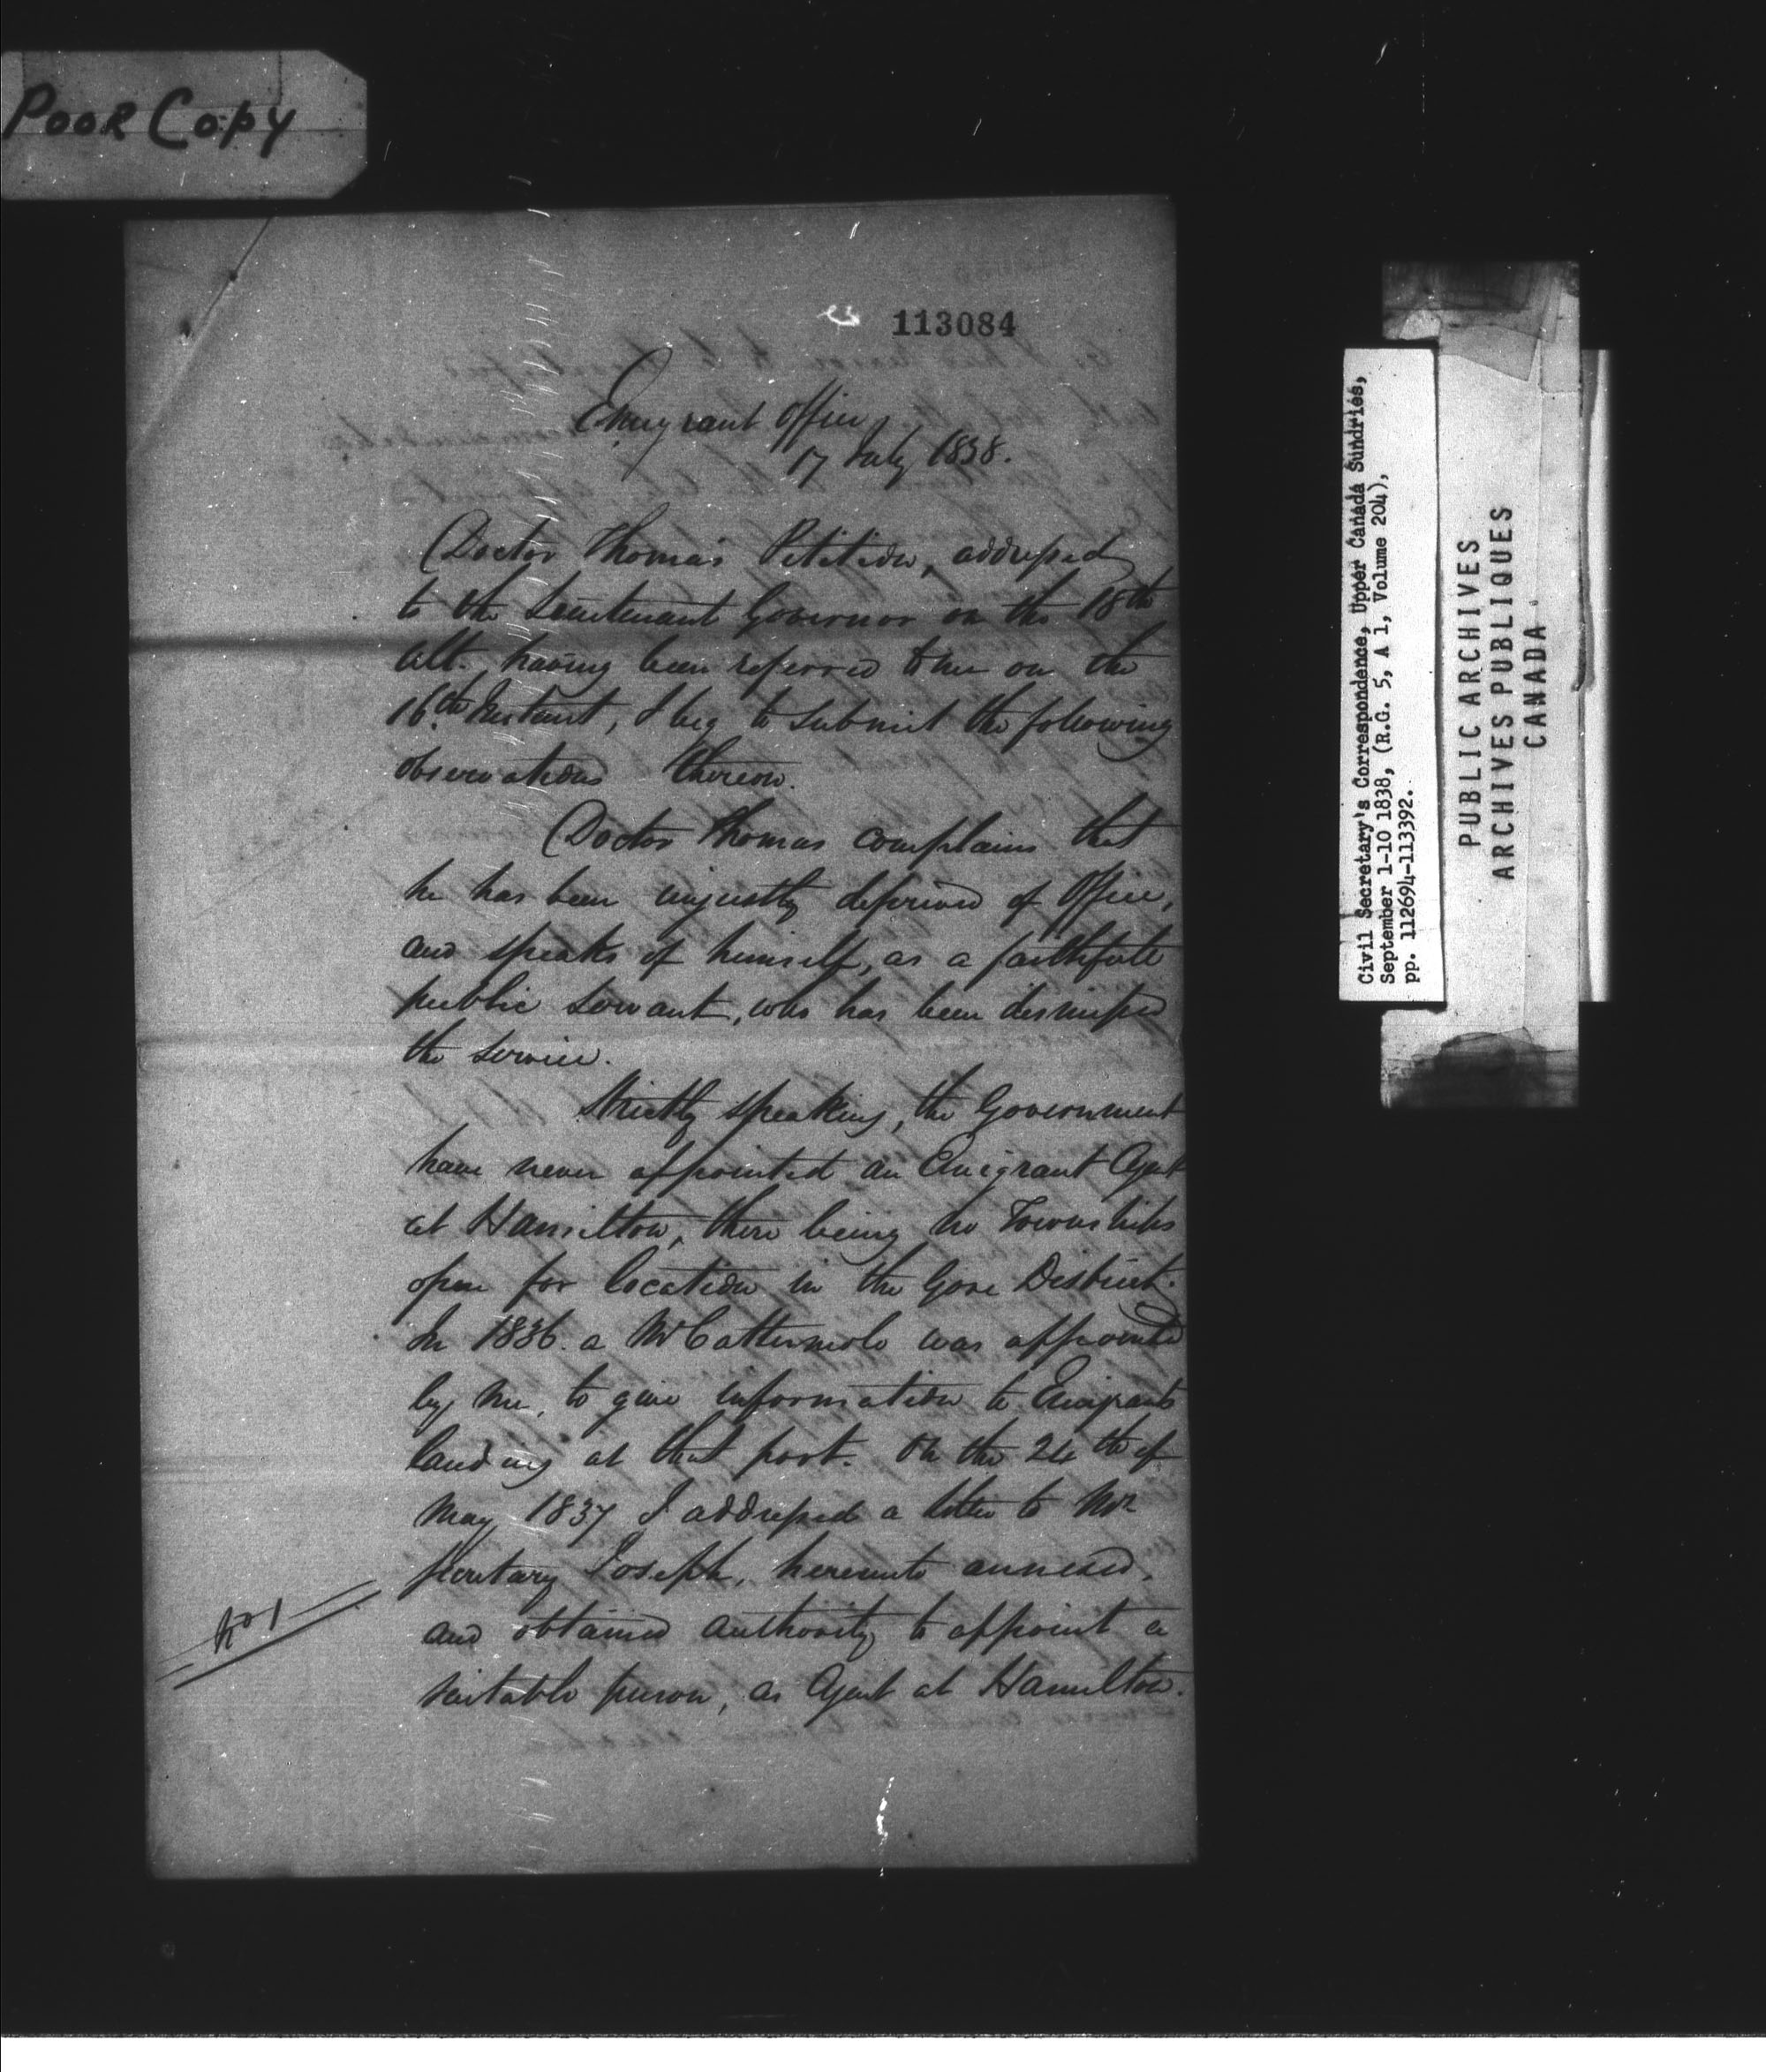 POOR COPY
113084
Emigrant Office,
17 July 1838.
Doctor Thomas's Petition, addressed
to the Lieutenant Governor on the 18th
Ult. having been referred to me on the
16th Instant, I beg to submit the following
observations thereon.
Doctor Thomas complains that
he has been unjustly deprived of Office,
and speaks of himself, as a faithfull
public servant, who has been dismissed
the service.
Strictly speaking, the Government
have never appointed an Emigrant Agent
at Hamilton, there being no Townships
open for location in the Gore District.
In 1836. a Mr Cattermole was appointed
by me, to give information to Emigrants
landing at that port. On the 24th of
May 1837 I addressed a letter to Mr
Secretary Joseph, hereunto annexed,
and obtained authority to appoint a
suitable person, as Agent at Hamilton.
No 1
Civil Secretary's Correspondence, Upper Canada Sundries,
September 1-10 1838, (R.G. 5, A 1, Volume 204),
pp. 112694-113392.
PUBLIC ARCHIVES
ARCHIVES PUBLIQUES
CANADA